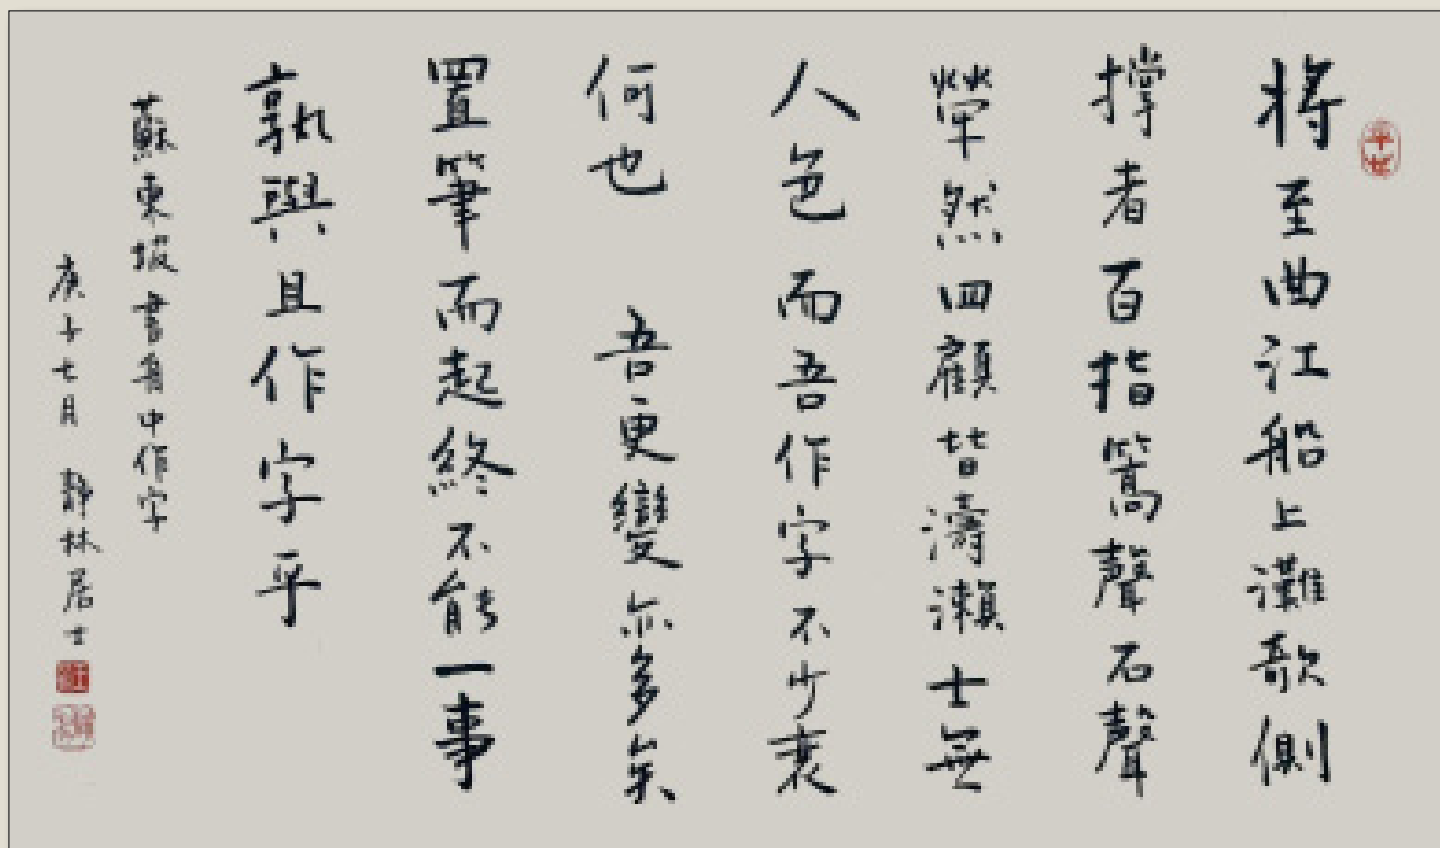 將至曲江船上灘歌側
撐者百指篙聲石聲
犖然四顧皆濤瀨士無
人色而吾作字不少衰
何也 吾更變亦多矣
置筆而起終不能一事
孰與且作字乎
蘇東坡書舟中作字
庚子七月 靜林居士
平安